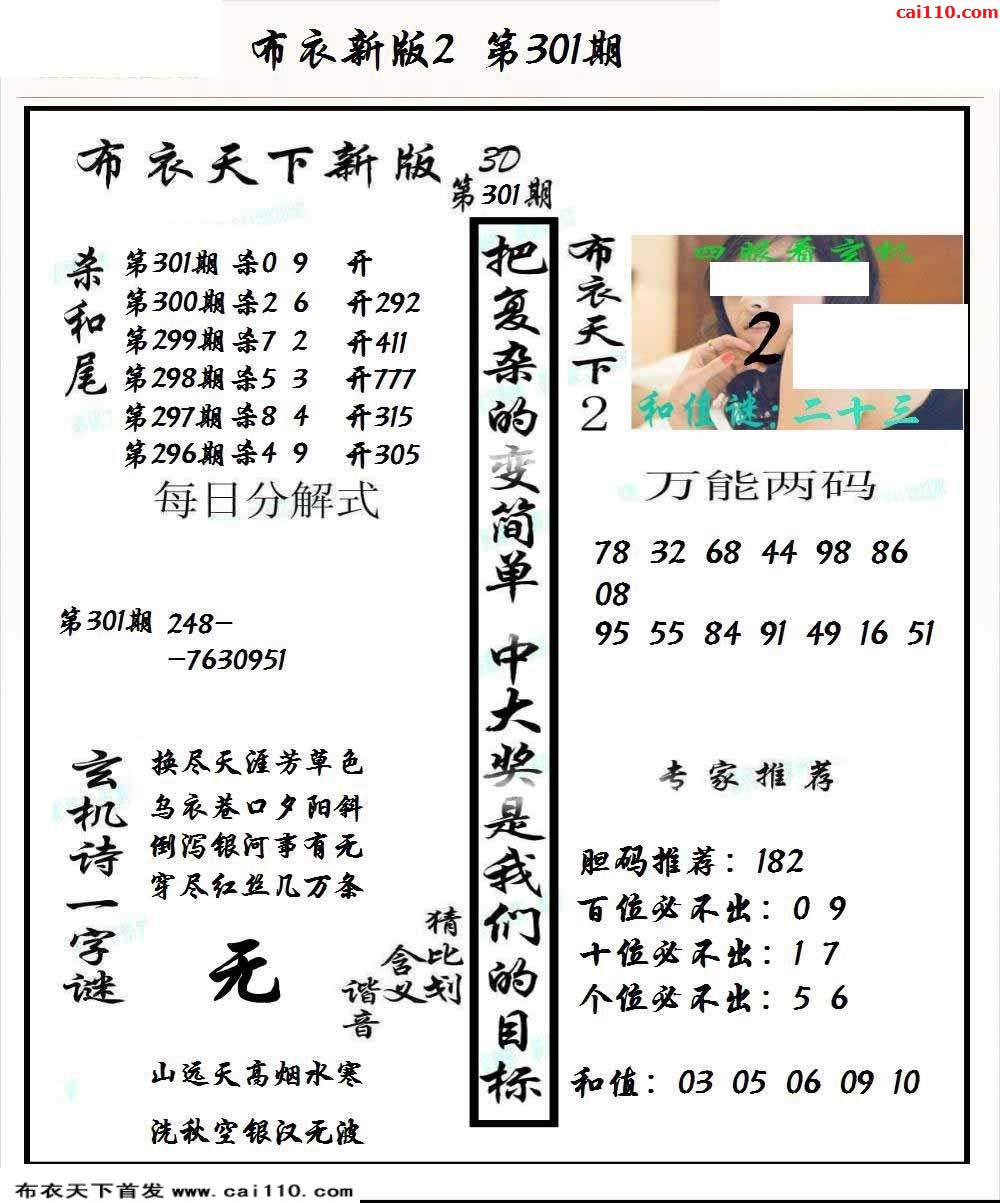 cai110.com
布衣新版2 第301期
布衣天下新版 3D
第301期
杀和尾
第301期 杀0 9 开
第300期 杀2 6 开292
第299期 杀7 2 开411
第298期 杀5 3 开777
第297期 杀8 4 开315
第296期 杀4 9 开305
每日分解式
第301期 248-
-7630951
玄机诗一字谜
换尽天涯芳草色
乌衣巷口夕阳斜
倒泻银河事有无
穿尽红丝几万条
无
猜比划
含义
谐音
山远天高烟水寒
洗秋空银汉无波
把复杂的变简单 中大奖是我们的目标
布衣天下2
四眼看玄机
2
和值谜:二十三
万能两码
78 32 68 44 98 86
08
95 55 84 91 49 16 51
专家推荐
胆码推荐：182
百位必不出：0 9
十位必不出：1 7
个位必不出：5 6
和值：03 05 06 09 10
布衣天下首发 www.cai110.com